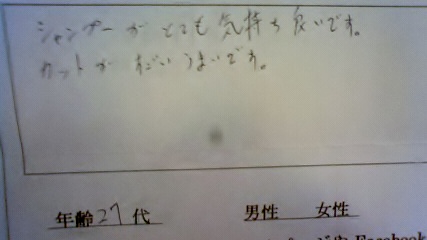 シャンプーがとても気持ち良いです。
カットがすごいうまいです。
年齢27代 男性 女性
Facebook